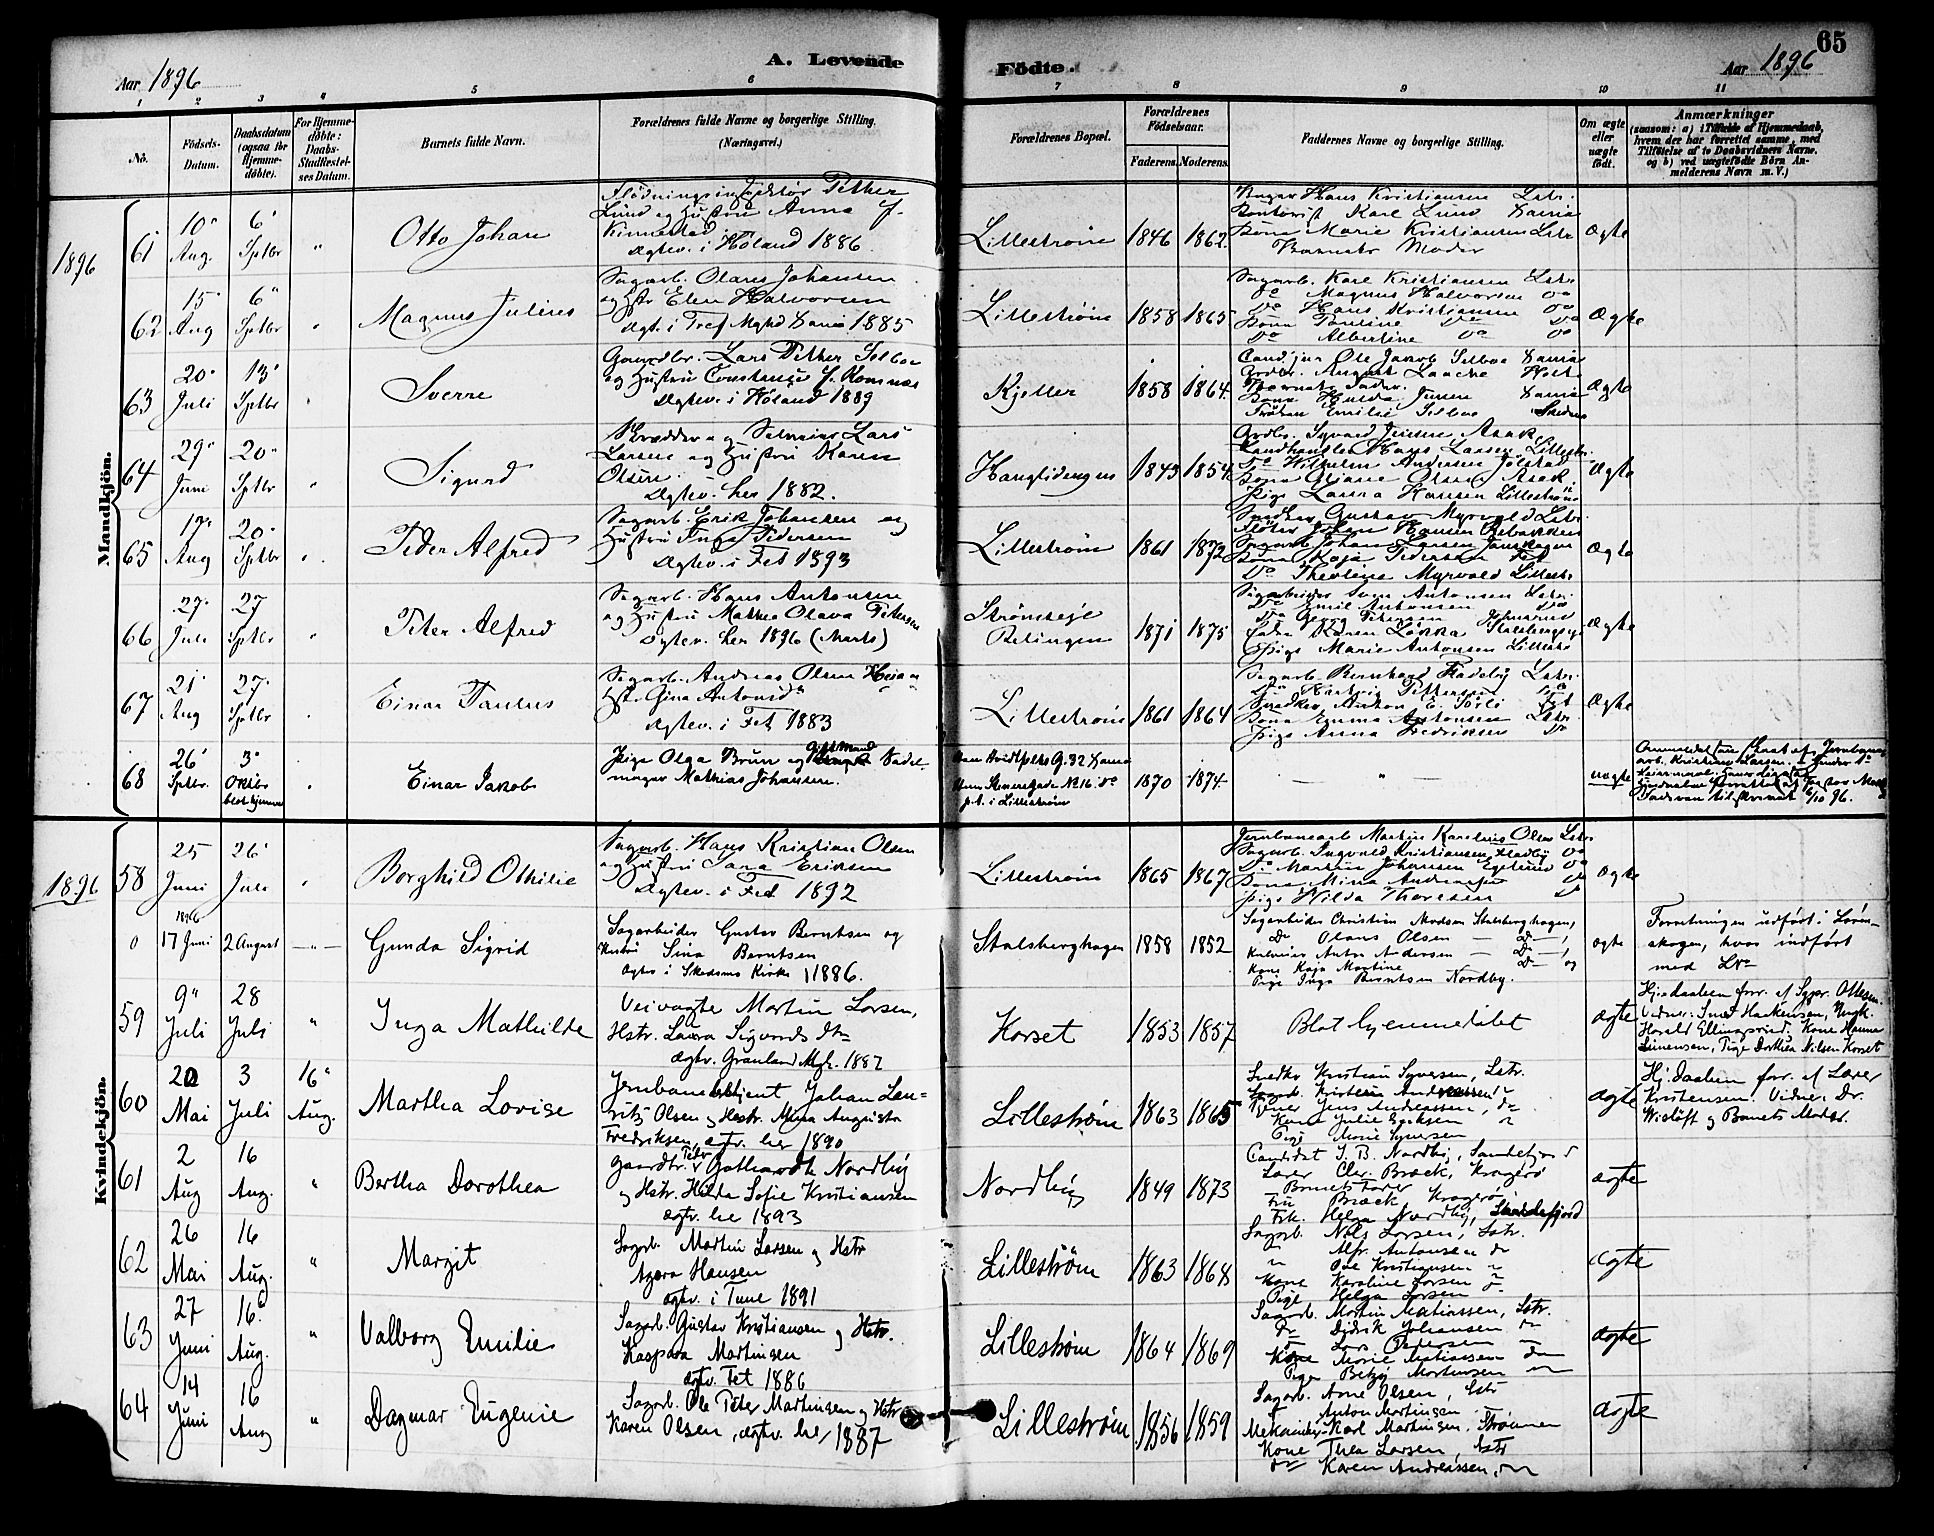 65
Aar 1896
A. Levende
Födte.
Aar 1896
1 2 3 4 5 6 7 8 9 10 11
No.
Födsels-Datum.
Daabsdatum (ogsaa for Hjemme-döbte).
For Hjemme-döbte: Daabs-Stadfæstel-ses Datum.
Barnets fulde Navn.
Forældrenes fulde Navne og borgerlige Stilling.
(Næringsvei.)
Forældrenes Bopæl.
Forældrenes Födselsaar.
Faderens. Moderens.
Faddernes Navne og borgerlige Stilling.
Om ægte eller uægte födt.
Anmærkninger
(saasom: a) i Tilfælde af Hjemmedaab,
hvem der har forrettet samme, med
Tilföielse af to Daabsvidners Navne.
og b) ved uægtefödte Börn An-
melderens Navn m. V.)
Mandkjön.
1896
61
10 Aug.
6 Sptbr
"
Otto Johan
Flödningsinspektör Pether
Lund og Hustru Anna f.
Ægtev. i Høland 1886.
Lillestrøm
1846
1862.
Hans Kristiansen Lstr.
Kontorist Karl Lund
Kone Marie Kristiansen Lstr
Barnets Moder
Ægte
62
15 Aug
6 Sptbr
"
Magnus Julius
Sagarb. Olares Johansen
og Hstr Elen Halvorsen
1885
Lillestrøm
1858
1865
Sagarb. Karl Kristiansen Lstr.
Do Magnus Halvorsen Do
Do Hans Kristiansen Do
Kone Pauline Do Do
Do Albertine Do Do
Ægte
63
20 Juli
13 Sptbr
"
Sverre
Gaardbr. Lars Pether Selboe
og Hustru Constance f. Komnæs
Ægtev. i Høland 1889
Kjeller
1858
1864.
Cand. jur Ole Jakob Selboe
Grdbr. August Laache
Barnets Fader.
Kone Hulda Jensen
Frøken Emilie Selboe
Ægte
64
29 Juni
20 Sptbr
"
Sigurd
Skrædder og Selveier Lars
Larsen og Hustru Karen
Olsen.
Ægtev. her 1882.
1843
1854.
Grdbr. Syvard Jensen Asak
Landhandler Hans Larsen Lillestr.
Do Wilhelm Andersen Jölstad
Kone Oliane Olsen Asak
Pige Laura Hansen Lillestrøm
Ægte
65
17 Aug
20 Sptbr
"
Peder Alfred
Sagarb. Erik Johansen og
Hustru Inga Pedersen
Ægtev. i Fet 1893
Lillestrøm
1861
1872
Snedker Gustav Myrvold Lstr.
Fløter Johan Hansen
Sagarb. Johan Larsen
Kone Kaja Pedersen Fet
Do Theoline Myrvold Lillestr.
Ægte
66
27 Juli
27 Sptbr
"
Peter Alfred
Sagarb. Hans Antonsen
og Hustru Mathea Olava Petersen
Ægtev. her 1896 (Marts)
Strømseje
Relingen
1871
1875
Sagarbeider Sven Antonsen Lstr.
Do Emil Antonsen Do
Do Georg Petersen
Enke Karen Løkka
Pige Marie Antonsen Lillestr
Ægte
67
21 Aug
27 Sptbr
"
Einar Paulus
Sagarb. Andreas Olsen Heia og
Hst. Gina Antonsd
Ægtev. i Fet 1883
Lillestrøm
1861
1864
Sagarb. Bernhard Fladeby Lstr.
Do Hartvig Pettersen Do
Snedker Anton E. Fet
Kone Emma Antonsen Lstr
Pige Anna Fredriksen Do
Ægte
68
26 Sptbr.
3 Oktbr
blot hjemme
"
Einar Jakob
Pige Olga Brun og Gift Mand Sadel-
mager Mathias Johansen.
No 16. Do
p.t. i Lillestrøm
1870
1874.
— " —
uægte
Kristian Larsen.
6/10 96.
Kvindekjön.
1896
58
25 Juni
26 Juli
"
Borghild Othilie
Sagarb. Hans Kristian Olsen
og Hustru Eriksen
Ægtev. i Fed 1892
Lillestrøm
1865
1867
Jernbanearb Martin Karelius Olsen Lstr.
Sagarb. Ingvald Kristiansen Fladby Do
Do Martin Johansen Egelund Do
Kone Mina Andreassen Do
Pige Hilda Thoresen Do
Ægte
0
1896
17 Juni
2 August
— " —
Gunda Sigrid
Sagarbeider Gustav Berntsen og
Hustru Sina Berntsen
Ægtev i Skedsmo Kirke 1886.
Stalsberghagen
1858
1852
Sagarbeider Christian Madsen Stalsberghagen,
Do Olaus Olsen — Do —,
Anton Andersen — Do — og
Kone Kaja Martine
Pige Inga Berntsen Nordby.
ægte
Forretningen udført i Lørn-
skogen, hvor indført
med No
59
9 Juli
28 Juli
"
Inga Mathilde
Veivogte Martin Larsen,
Hstr. Laura Sigvards dtr
Ægtv. Granland Mgh. 1882
Korset
1853
1857
Blot hjemmedöbt
ægte
Hj.daaben forr. af Sgpr. Ottesen.
Vidner: Smed Haakensen, Ungk.
Harald Ellingsrud. Kone Hanna
Simensen, Pige Dorthea Nilsen Korset
60
20 Mai
3 Juli
16 Aug.
Martha Lovise
Jernbanebetjent Johan Lau-
ritz Olsen og Hustr. Mina Augusta
Fredriksen, ægtv. her 1890
Lillestrøm
1863
1865
Snedker Kristian Syversen, Lstr.
Sagarb. Kristian Andreassen "
Jens Andreassen, do
Kone Julie Egelsen "
Pige Marie Syversen
ægte
Hj. daaben forr. af Lærer
Kristensen. Vidner: Dr.
Wisløft og Barnets Moder.
61
2 Aug
16 Aug.
"
Bertha Dorothea
Gaardbr. Peter Gothardt Nordby
og Hstr. Hilda Sofie Kristiansen
Ægtv. her 1893
Nordby
1849
1873
Candidat I. B. Nordby, Sandefjord
Lærer Chr. Bræck, Kragerø
Barnets Fader
Fru Bræck Kragerø
Frk. Helga Nordby, Sandefjord
ægte
62
26 Mai
16 Aug.
"
Margit
Sagarb. Martin Larsen og Hstr
Agara Hansen
ægtv. i Tune 1891
Lillestrøm
1863
1868
Sagarb. Nils Larsen, Lstr.
" Alfr. Antonsen do
" Ole Kristiansen "
Kone Karoline Larsen do
Pige Helga Larsen do
ægte
63
27 Juni
16 Aug.
"
Valborg Emilie
Sagarb. Gustav Kristiansen og Hstr.
Kaspara Martinsen
ægtv. Fet 1886
Lillestrøm
1864
1869
Sagarb. Martin Matiassen, Lstr.
Do Didrik Johansen do
Do Lars Pedersen
Kone Marie Matiassen do
Pige Betzy Martinsen do
ægte
64
14 Juni
16 Aug
"
Dagmar Eugenie
Sagarb. Ole Peter Martinsen og Hstr
Karen Olsen, ægtv. her 1887
Lillestrøm
1856
1859
Sagarb. Arne Olsen, Lstr
" Anton Martinsen
Karl Martinsen, Strømmen
Kone Thea Larsen, Lstr
do Karen Andreassen, do
ægte